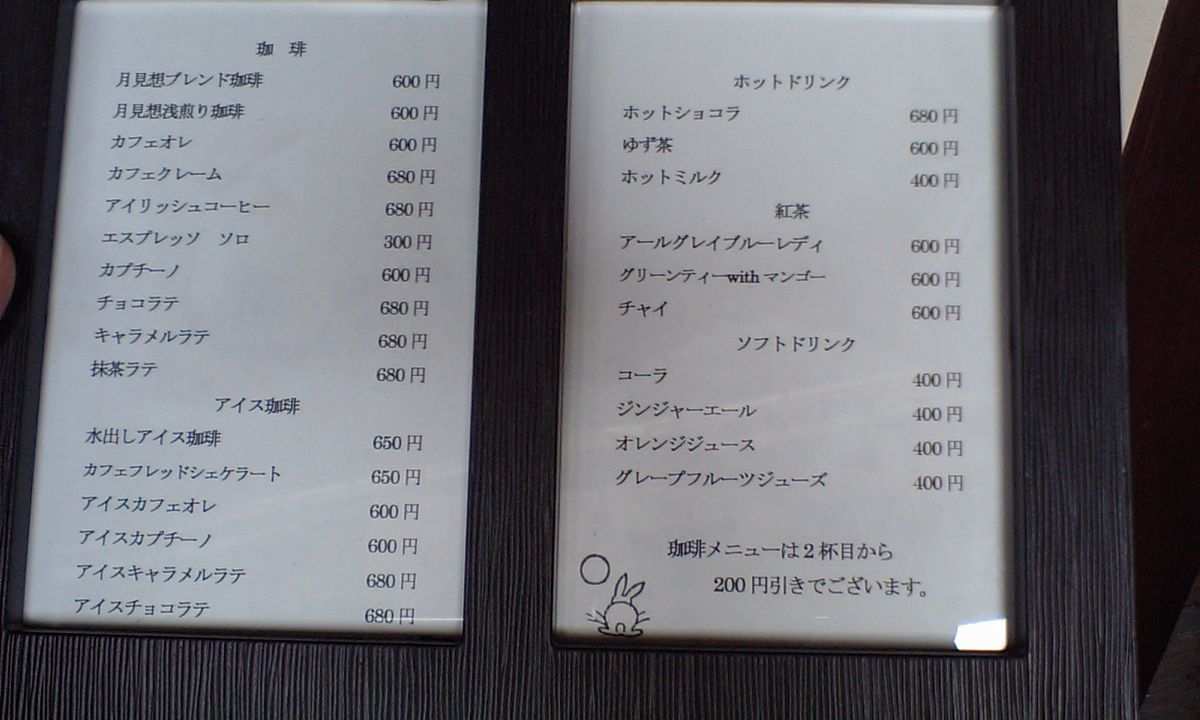 珈 琲
月見想ブレンド珈琲 600円
月見想浅煎り珈琲 600円
カフェオレ 600円
カフェクレーム 680円
アイリッシュコーヒー 680円
エスプレッソ ソロ 300円
カプチーノ 600円
チョコラテ 680円
キャラメルラテ 680円
抹茶ラテ 680円
アイス珈琲
水出しアイス珈琲 650円
カフェフレッドシェケラート 650円
アイスカフェオレ 600円
アイスカプチーノ 600円
アイスキャラメルラテ 680円
アイスチョコラテ 680円
ホットドリンク
ホットショコラ 680円
ゆず茶 600円
ホットミルク 400円
紅茶
アールグレイブルーレディ 600円
グリーンティーwithマンゴー 600円
チャイ 600円
ソフトドリンク
コーラ 400円
ジンジャーエール 400円
オレンジジュース 400円
グレープフルーツジューズ 400円
珈琲メニューは2杯目から
200円引きでございます。